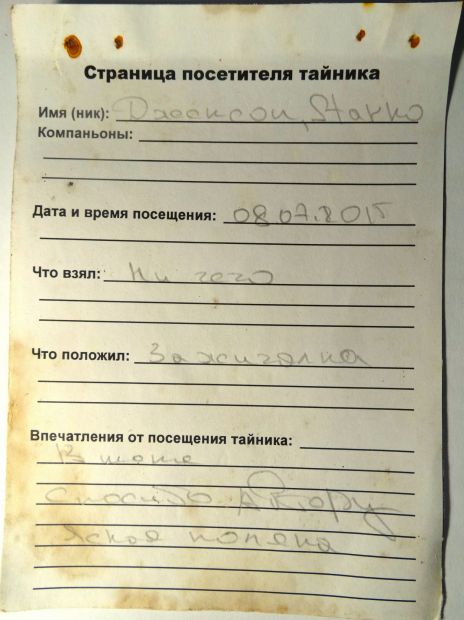 Страница посетителя тайника
Имя (ник): Джексон, Stakko
Компаньоны:
Дата и время посещения: 08.07.2015
Что взял: Ни чего
Что положил: Зажигалка
Впечатления от посещения тайника:
В шоке
Спасибо Автору
Ясная поляна